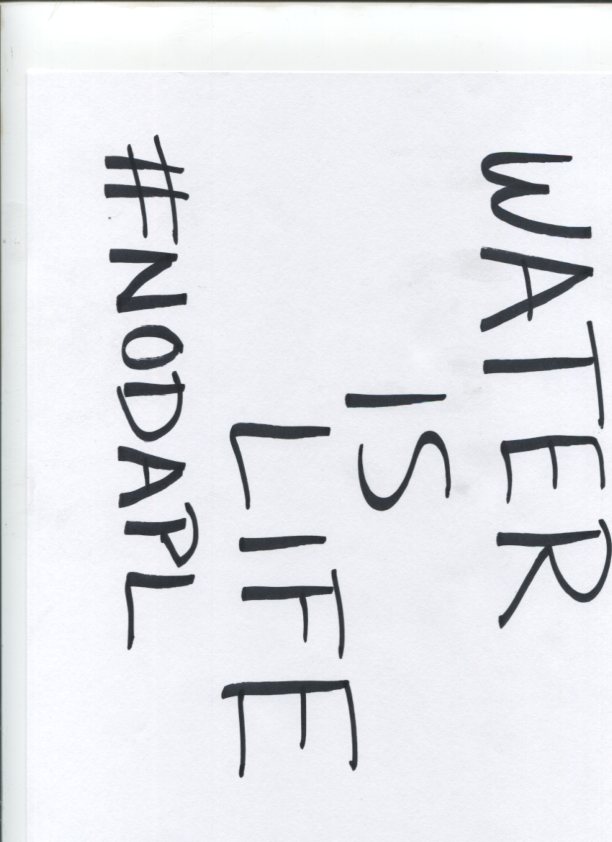 WATER
IS
LIFE
#NODAPL